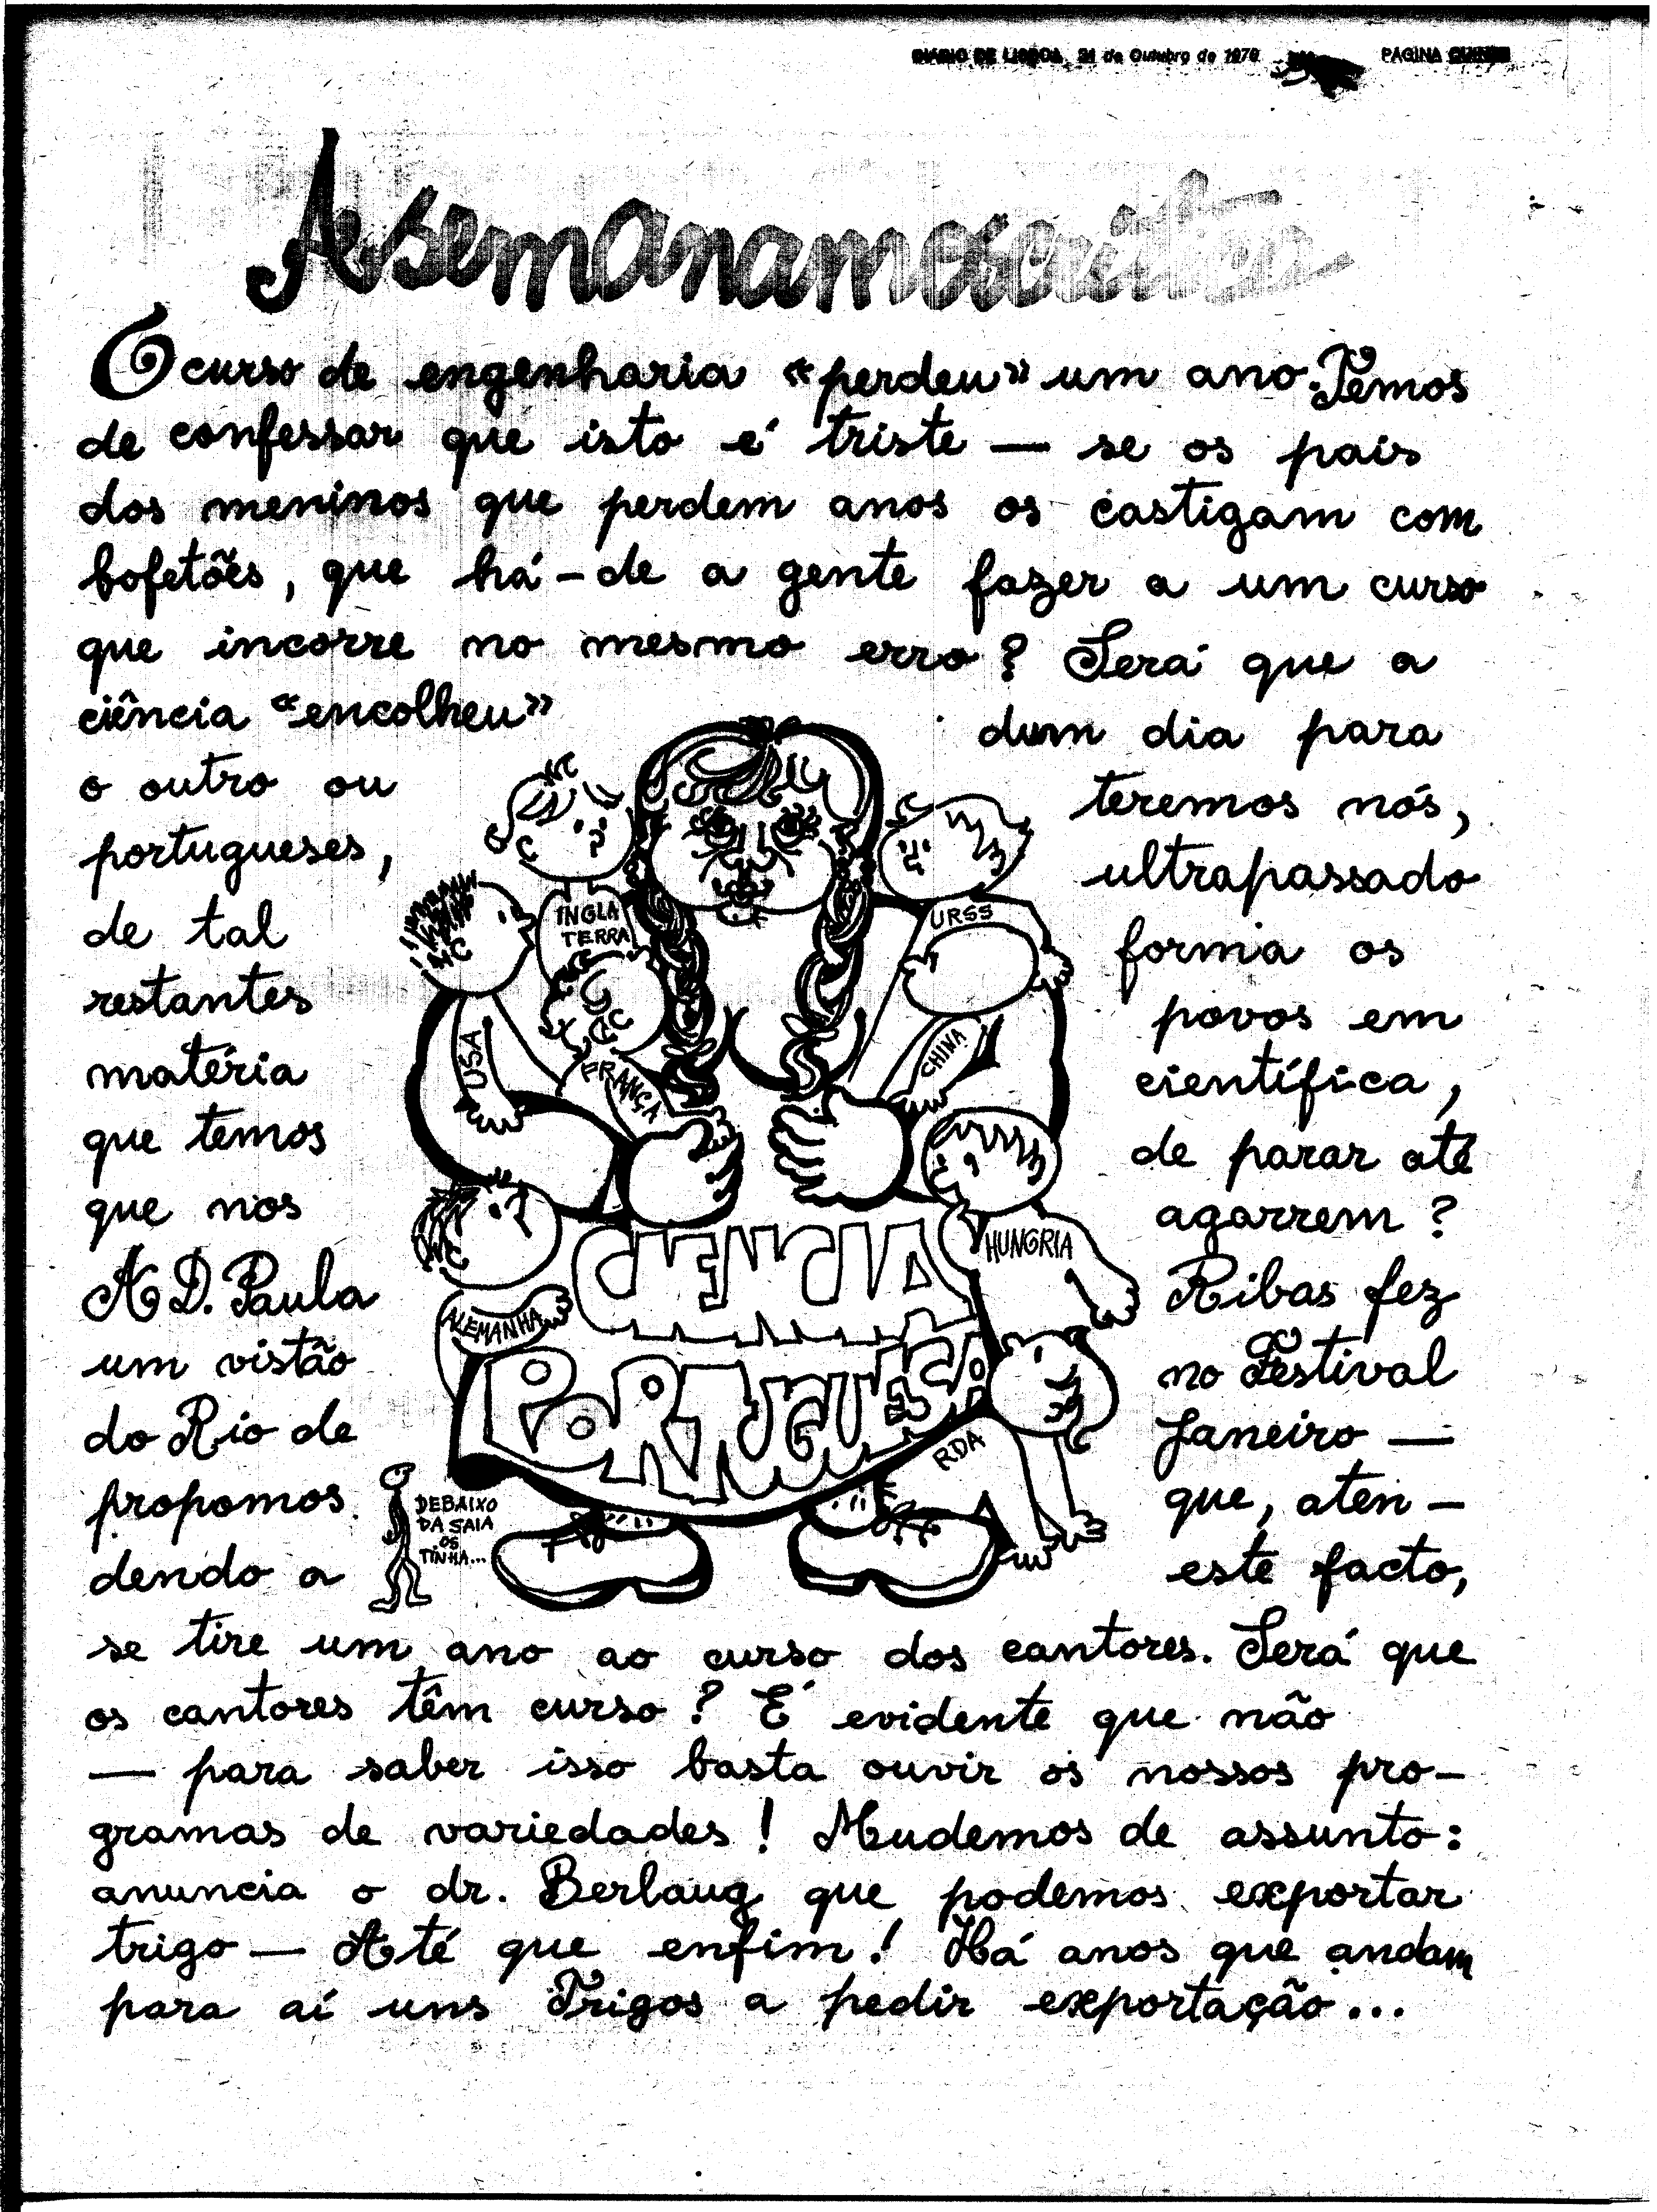 DIÁRIO DE LISBOA, 21 de Outubro de 1970 PÁGINA
A semanamoscrita
O curso de engenharia «perdeu» um ano. Temos
de confessar que isto é triste — se os pais
dos meninos que perdem anos os castigam com
bofetões, que há-de a gente fazer a um curso
que incorre no mesmo erro? Será que a
ciência «encolheu» dum dia para
o outro ou teremos nós,
portugueses, ultrapassado
de tal forma os
restantes povos em
matéria científica,
que temos de parar até
que nos agarrem?
A D. Paula Ribas fez
um vistão no Festival
do Rio de Janeiro —
propomos que, aten-
dendo a este facto,
se tire um ano ao curso dos cantores. Será que
os cantores têm curso? É evidente que não
— para saber isso basta ouvir os nossos pro-
gramas de variedades! Mudemos de assunto:
anuncia o dr. Berlaug que podemos exportar
trigo — Até que enfim! Há anos que andam
para aí uns Trigos a pedir exportação...
INGLA
TERRA
URSS
USA
FRANÇA
CHINA
HUNGRIA
ALEMANHA
CIENCIA
PORTUGUESA
RDA
DEBAIXO
DA SAIA
OS
TINHA...